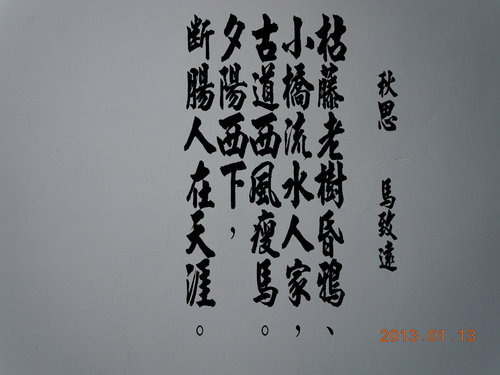 秋思 馬致遠
枯藤老樹昏鴉、
小橋流水人家，
古道西風瘦馬。
夕陽西下，
断腸人在天涯。
2013.01.13